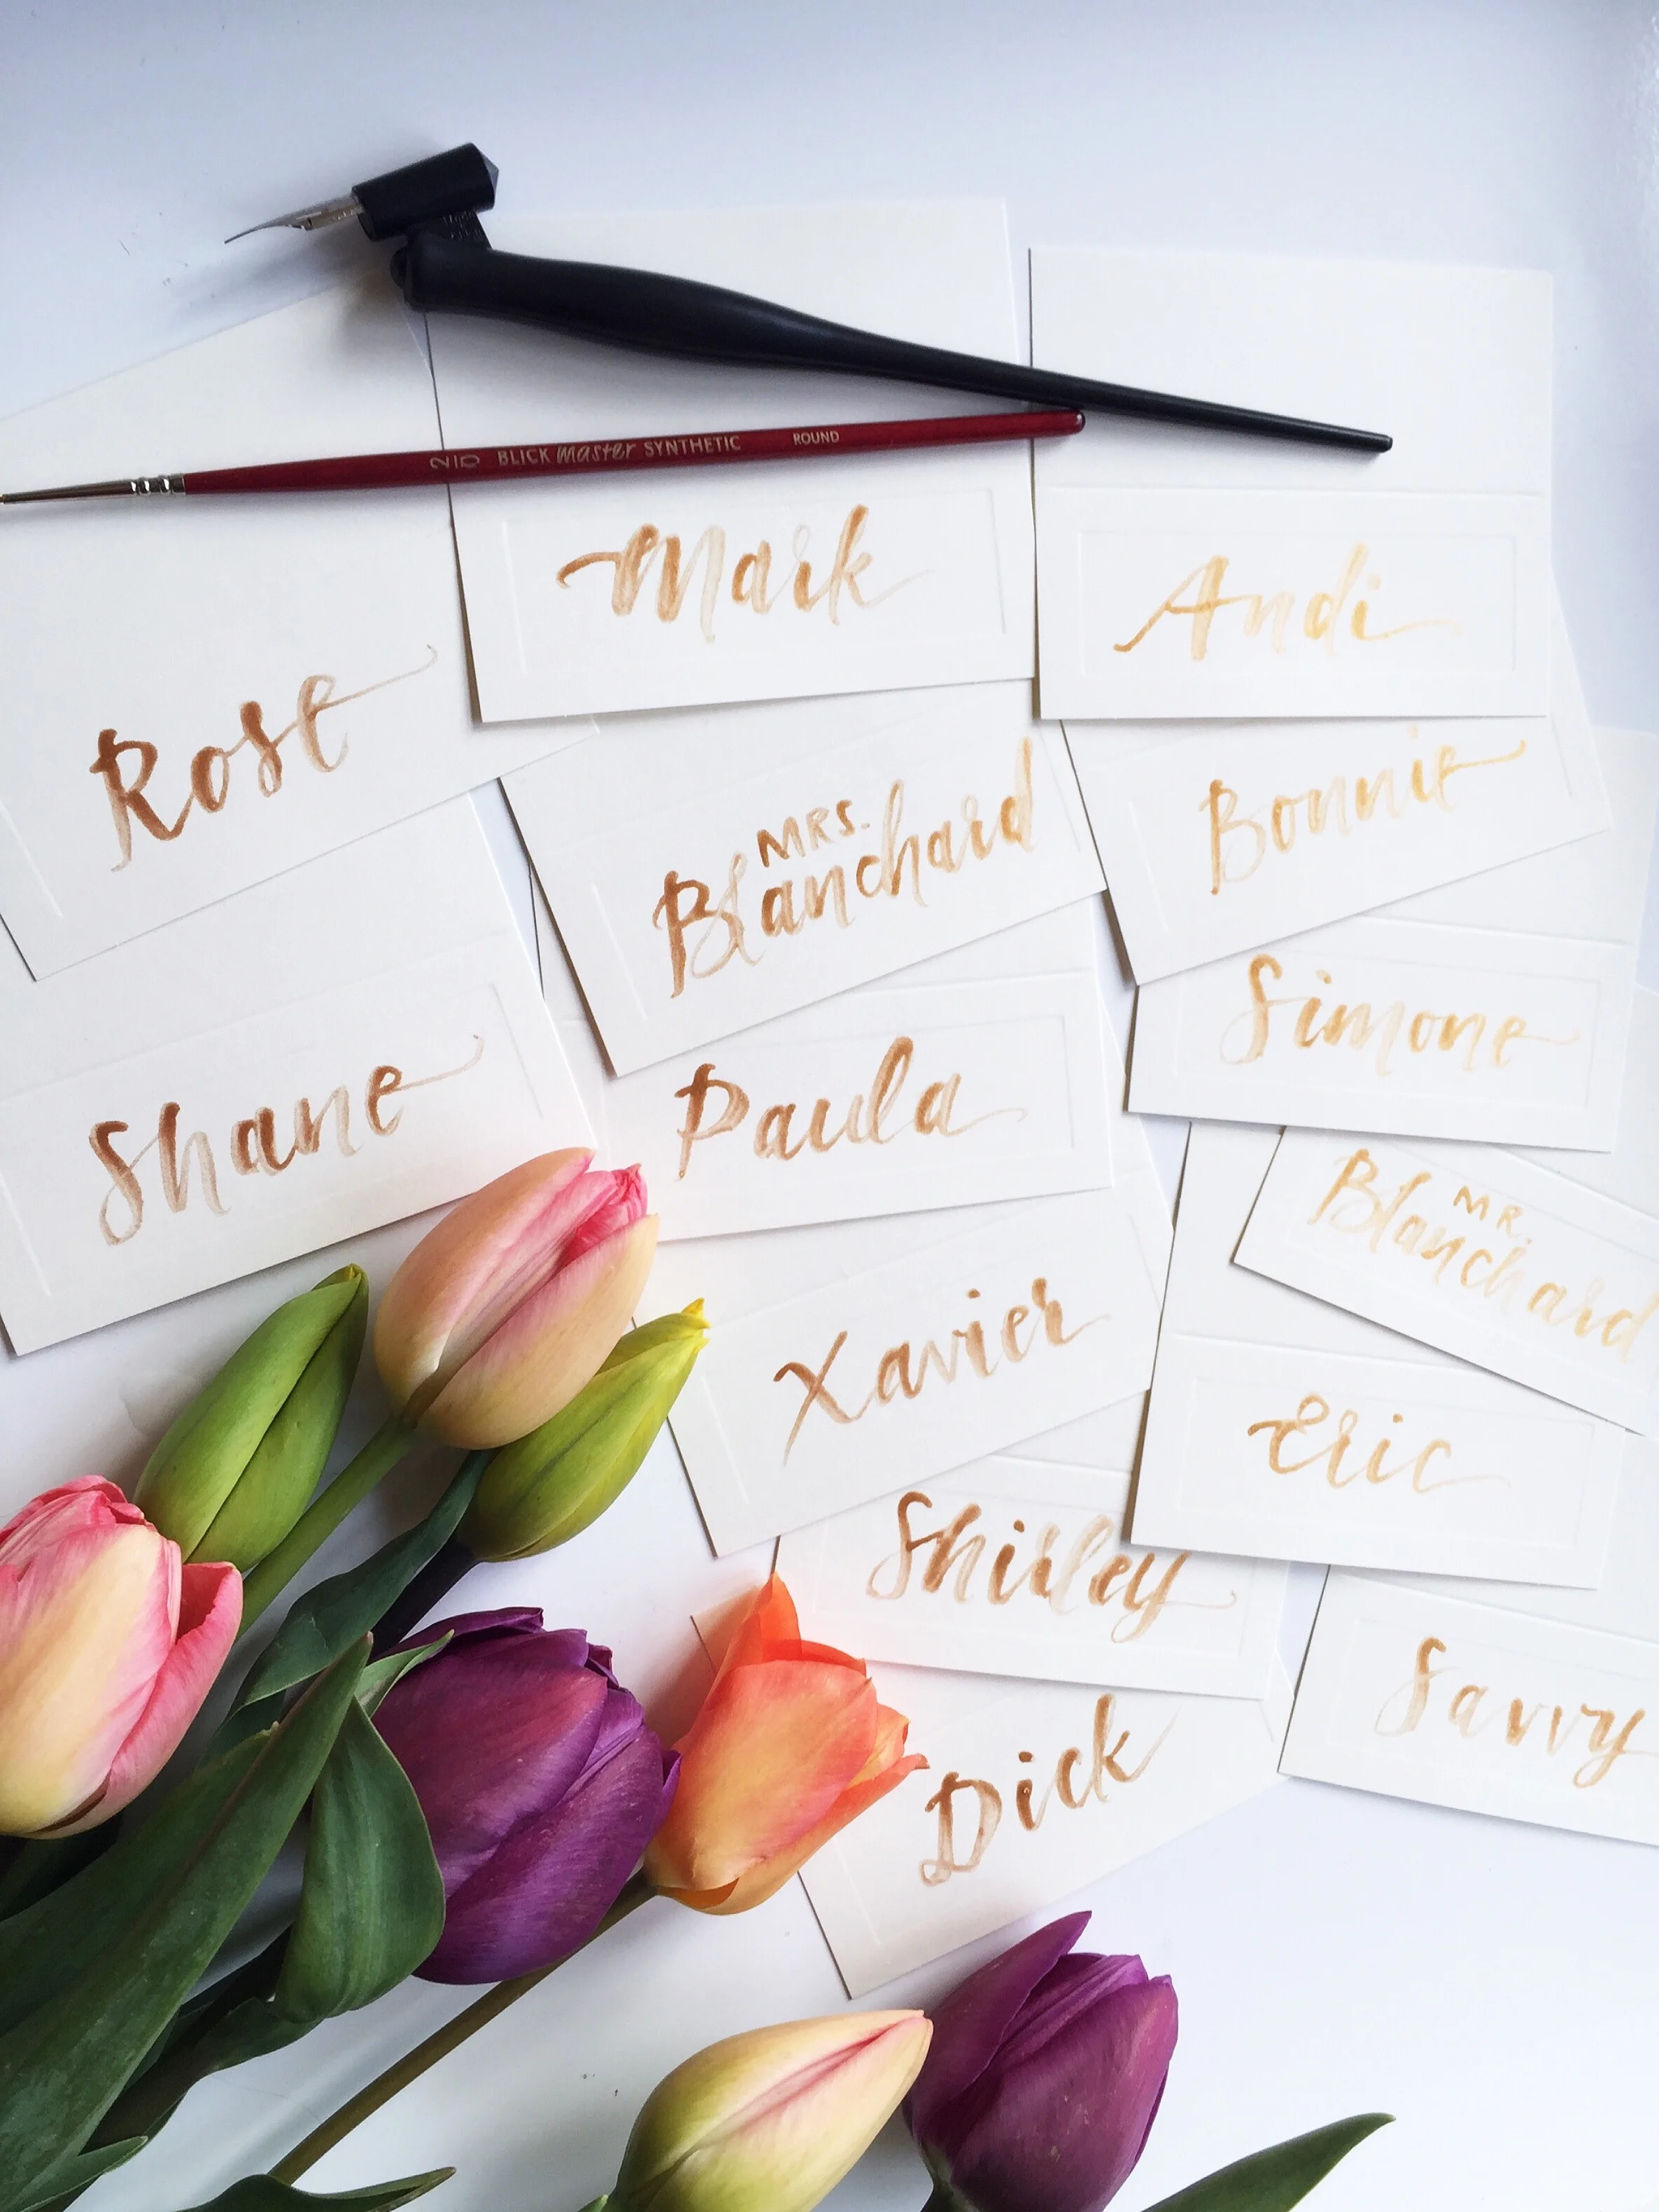 2/0 BLICK master SYNTHETIC ROUND
Mark
Andi
Rose
MRS.
Blanchard
Bonnie
Simone
Shane
Paula
MR.
Blanchard
Xavier
Eric
Shirley
Savvy
Dick